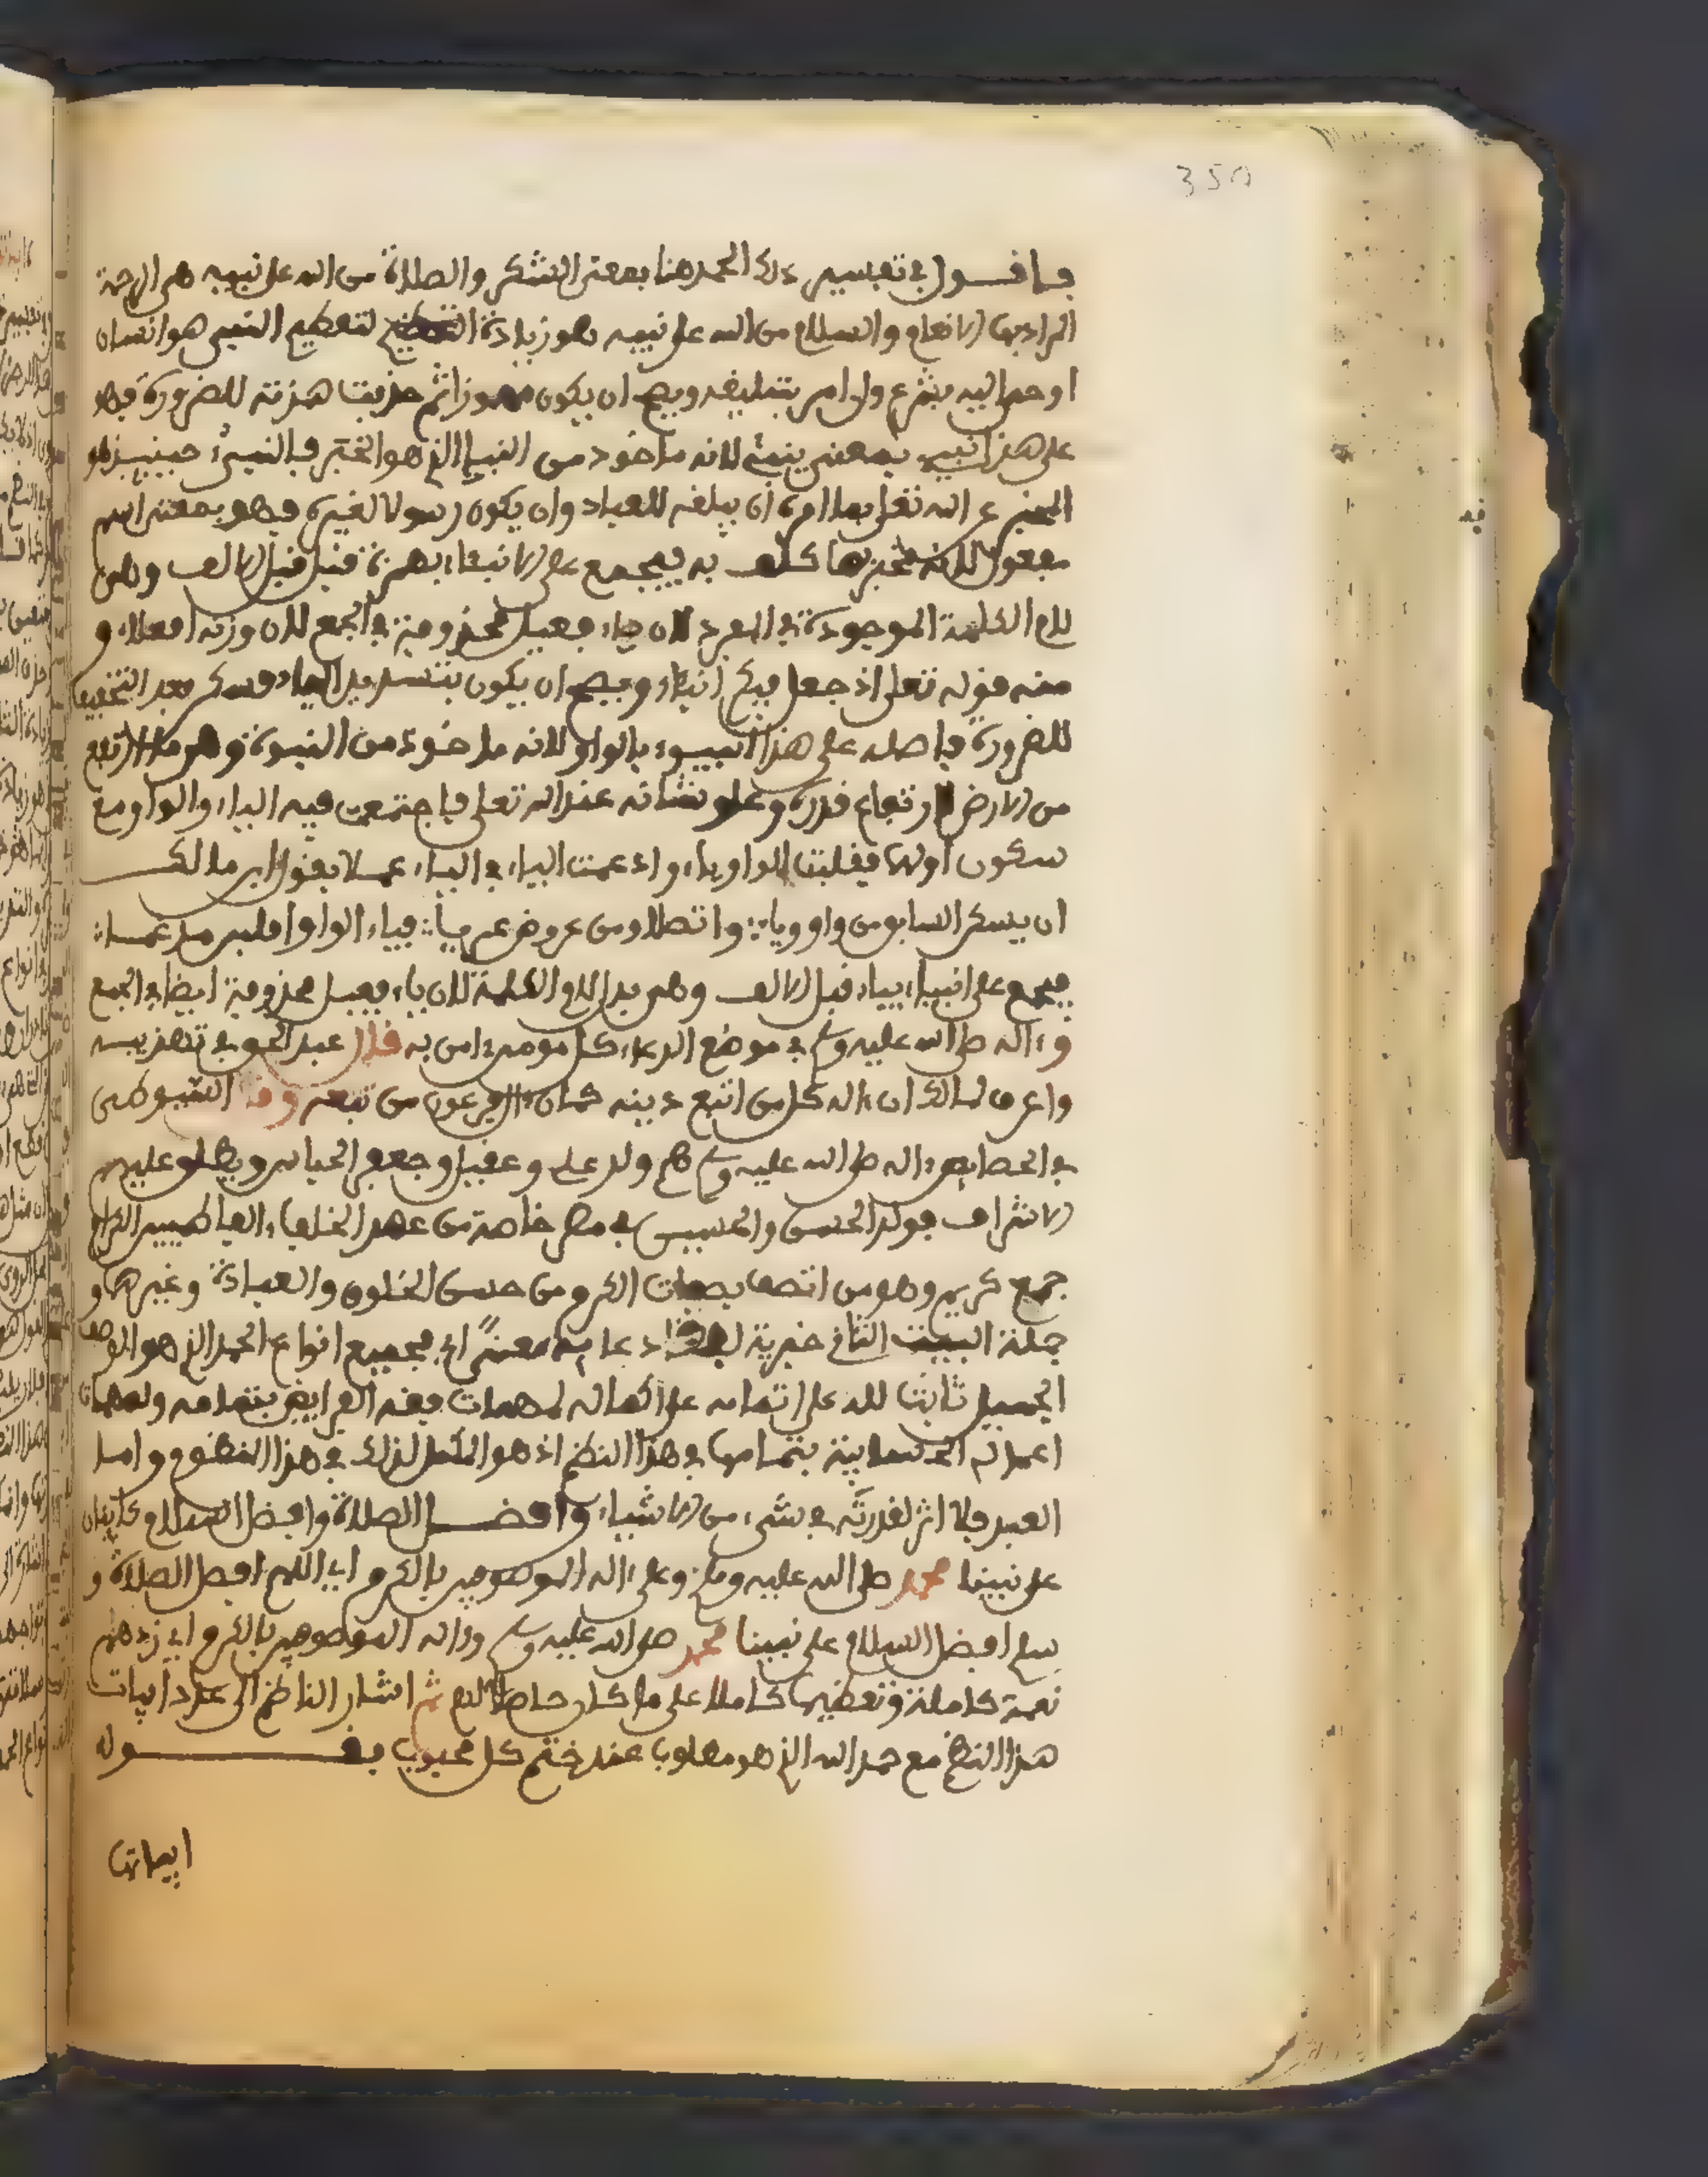 350
فأقول في تفسير ذلك الحمد هنا بمعنى الشكر والصلاة من الله على نبيه هي الرحمة
المراد بها الانعام والسلام من الله على نبيه هو زيادة التعظيم لتعظيم النبي هو انسان
اوحي اليه بشرع وان امر بتبليغه ويصح ان يكون مهموزا ثم حذفت همزته للضرورة فهو
على هذا نبيء بمعنى ينبئ لانه ماخوذ من النبإ الذي هو الخبر فالنبيء حينئذ هو
المخبر عن الله تعلى بما امره ان يبلغه للعباد وان يكون رسولا لغيره فهو بمعنى اسم
مفعول لانه مخبر بما كلف به فيجمع على الانبئاء بهمزة قبل الالف وهي
لام الكلمة الموجودة في المفرد لان ياء فعيل محذوفة في الجمع لان وزنه افعلاء و
منه قوله تعلى اذ جعل فيكم انبئاء ويصح ان يكون بتشديد الياء بعد التخفيف
للضرورة فاصله على هذا النبيو بالواو لانه ماخوذ من النبوة وهو ما ارتفع
من الارض لارتفاع قدره وعلو شانه عند الله تعلى فاجتمعت فيه الياء والواو مع
سكون اولهما فقلبت الواو ياء وادغمت الياء في الياء عملا بقول ابن مالك
ان يسكن السابق من واو ويا واتصلا ومن عروض عريا فياء الواو اقلبن مدغما
فيجمع على انبياء بياء قبل الالف وهي بدل لام الكلمة لان ياء فعيل محذوفة ايضا في الجمع
وءاله صلى الله عليه وسلم في موضع الدعاء كل مومن ءامن به قال عبد الحق في تهذيبه
واعرف لمالك ان ءاله كل من اتبع دينه كما ان ءال فرعون من تبعه وقال السيوطي
في الخصايص ءاله صلى الله عليه وسلم هم ولد علي وعقيل وجعفر والعباس ويطلق عليهم
الاشراف فولد الحسن والحسين في مصر خاصة من عهد الخلفاء الفاطميين الكرام
جمع كريم وهو من اتصف بصفات الكرم من حسن الخلق والعبادة وغيرها و
جملة البيت الثاني خبرية لفظا دعاية معنى اي جميع انواع الحمد الذي هو الوصف
الجميل ثابت لله على اتمامه على اكماله لمهمات فقه الفرايض بتمامه ولمهمات
اعمال الحسابية بتمامها في هذا النظم اذ هو المكمل لذلك في هذا المنظوم واما
العبد فلا اثر لقدرته في شيء من الاشياء وافضل الصلاة وافضل السلام كاينان
على نبينا محمد صلى الله عليه وسلم وعلى ءاله الموصوفين بالكرم اي اللهم افضل الصلاة و
سلم افضل السلام على نبينا محمد صلى الله عليه وسلم وءاله الموصوفين بالكرم اي زدهم
نعمة كاملة وتعظيما كاملا على ما كان حاصلا لهم ثم اشار الناظم الى عدد ابيات
هذا النظم مع حمد الله الذي هو مطلوب عند ختم كل محبوب بقوله
ابياتها